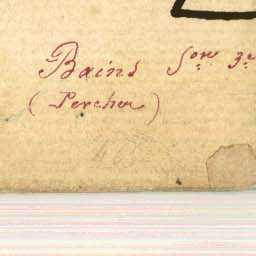 Bains Son 3e
(Percheu)